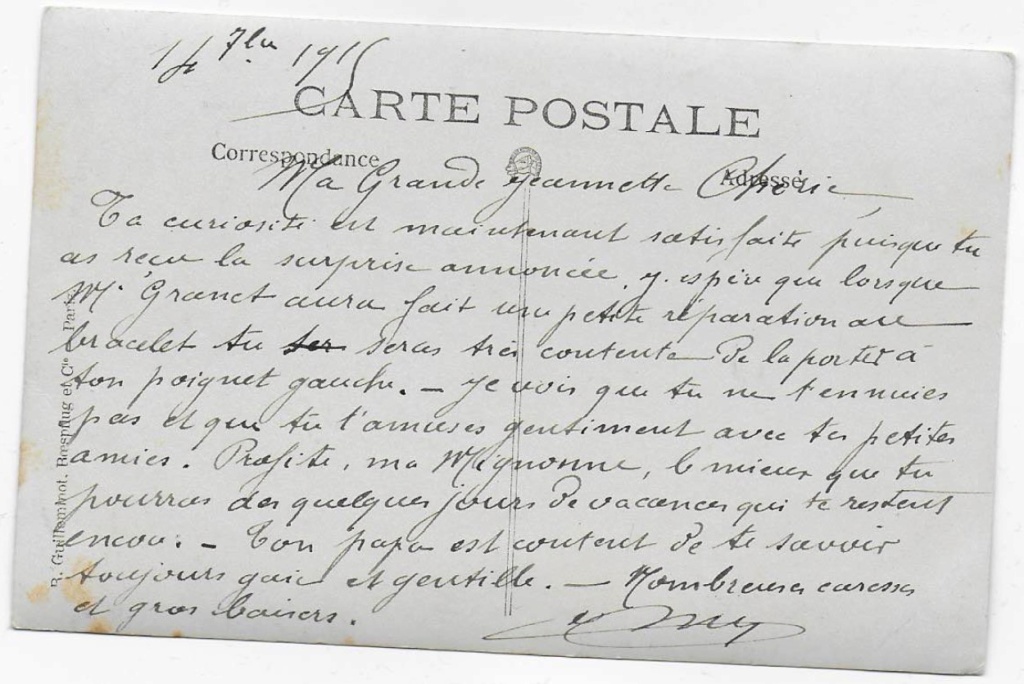 14 7bre 1915
CARTE POSTALE
Correspondance
Adresse
Ma Grande Jeannette Chérie
Ta curiosité est maintenant satisfaite puisque tu
as reçu la surprise annoncée. J'espère que lorsque
Mr Granet aura fait une petite réparation au
bracelet tu ser seras très contente de la porter à
ton poignet gauche. — Je vois que tu ne t'ennuies
pas et que tu t'amuses gentiment avec tes petites
amies. Profite, ma Mignonne, le mieux que tu
pourras des quelques jours de vacances qui te restent
encore. — Ton papa est content de te savoir
toujours gaie et gentille. — Nombreuses caresses
et gros baisers.
R. Guilleminot, Bœspflug et Cie Paris